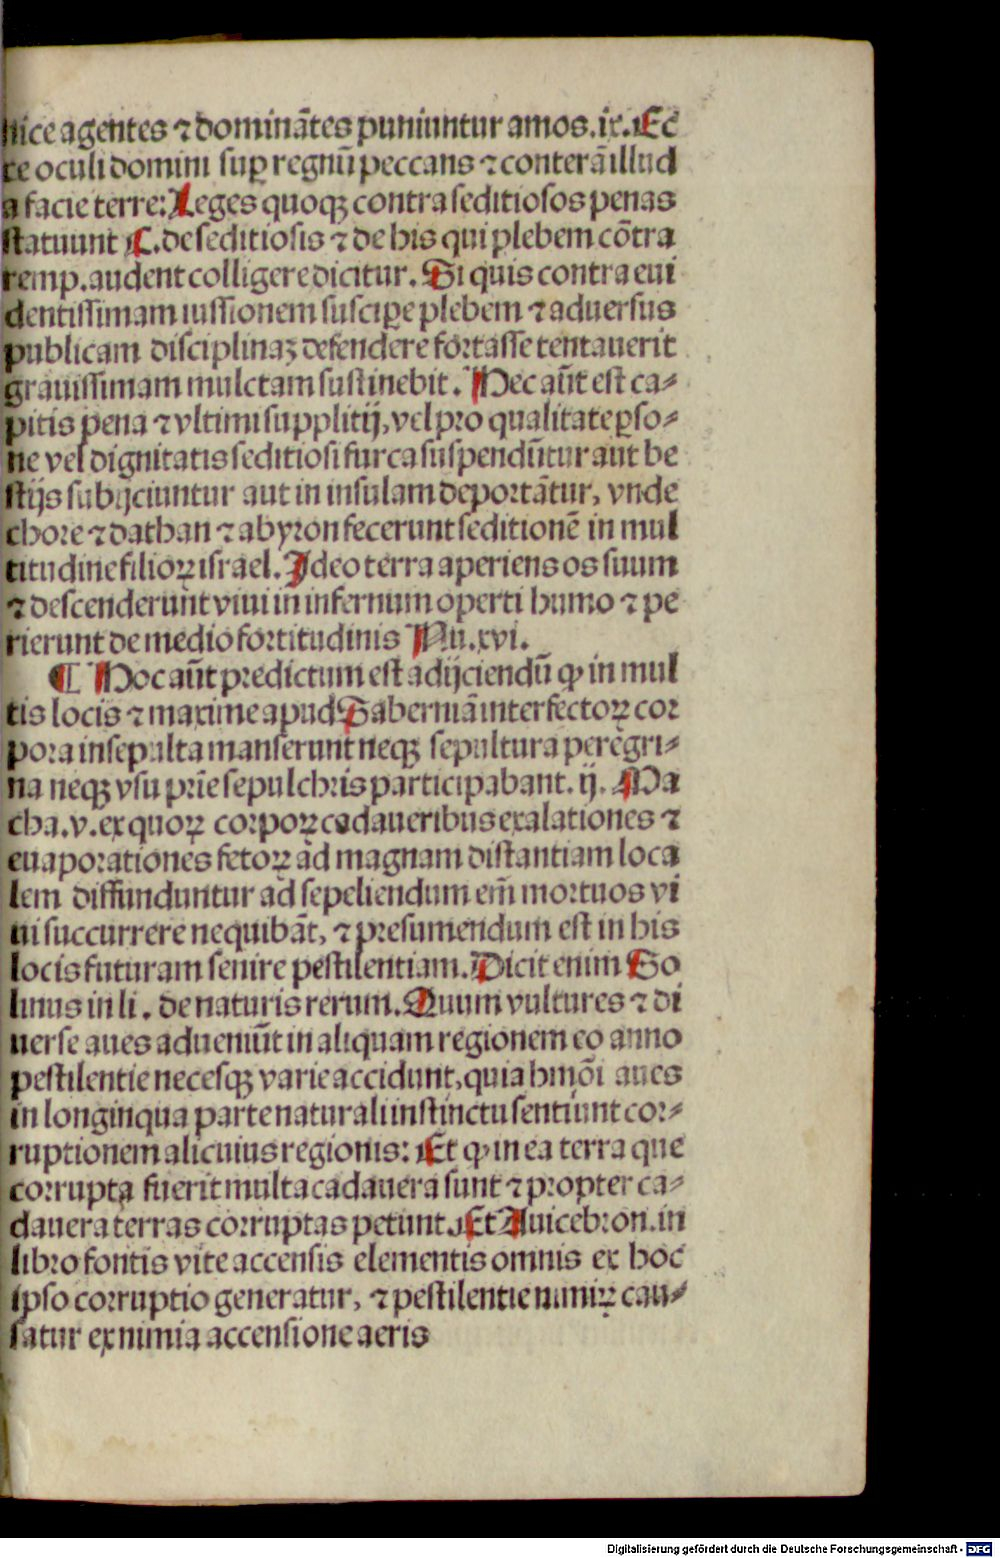 nice agentes ⁊ dominātes puniuntur amos.ix. Ec
ce oculi domini suꝑ regnū peccans ⁊ conterā illud
a facie terre: Leges quoqꝫ contra seditiosos penas
statuunt C. de seditiosis ⁊ de his qui plebem cōtra
remp. audent colligere dicitur. Si quis contra eui
dentissimam iussionem suscipe plebem ⁊ aduersus
publicam disciplinaꝫ defendere fortasse tentauerit
grauissimam mulctam sustinebit. Hec aūt est ca⸗
pitis pena ⁊ vltimi supplitij, vel pro qualitate ꝑso⸗
ne vel dignitatis seditiosi furca suspendūtur aut be
stijs subijciuntur aut in insulam deportātur, vnde
chore ⁊ dathan ⁊ abyron fecerunt seditionē in mul
titudine filioꝝ israel. Ideo terra aperiens os suum
⁊ descenderunt viui in infernum operti humo ⁊ pe
rierunt de medio fortitudinis Nu.xvi.
¶ Hoc aūt predictum est adijciendū ꝙ in mul
tis locis ⁊ maxime apud Saberniā interfectoꝝ cor
pora insepulta manserunt neqꝫ sepultura peregri⸗
na neqꝫ vsu prīe sepulchris participabant. ij. Ma
cha.v. ex quoꝝ corpoꝝ cadaueribus exalationes ⁊
euaporationes fetoꝝ ad magnam distantiam loca
lem diffunduntur ad sepeliendum em̄ mortuos vi
ui succurrere nequibāt, ⁊ presumendum est in his
locis futuram seuire pestilentiam. Dicit enim So
linus in li. de naturis rerum. Quum vultures ⁊ di
uerse aues adueniūt in aliquam regionem eo anno
pestilentie necesqꝫ varie accidunt, quia hmōi aues
in longinqua parte naturali instinctu sentiunt cor⸗
ruptionem alicuius regionis: Et ꝙ in ea terra que
corrupta fuerit multa cadauera sunt ⁊ propter ca⸗
dauera terras corruptas petunt. Et Auicebron. in
libro fontis vite accensis elementis omnis ex hoc
ipso corruptio generatur, ⁊ pestilentie nimiꝝ cau⸗
satur ex nimia accensione aeris
Digitalisierung gefördert durch die Deutsche Forschungsgemeinschaft - DFG